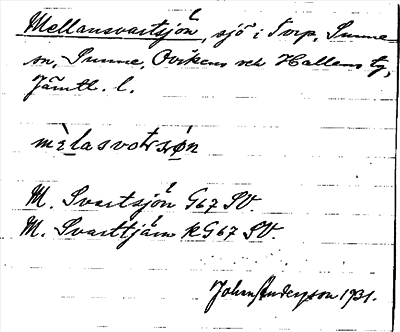 Mellansvartsjön, sjö i Torp, Sunne
sn, Sunne, Ovikens och Hallens tg,
Jämtl. l.
mèlasvotsǿn
M. Svartsjön G67 SV.
M. Svarttjärn k G67 SV.
John Anderson 1931.